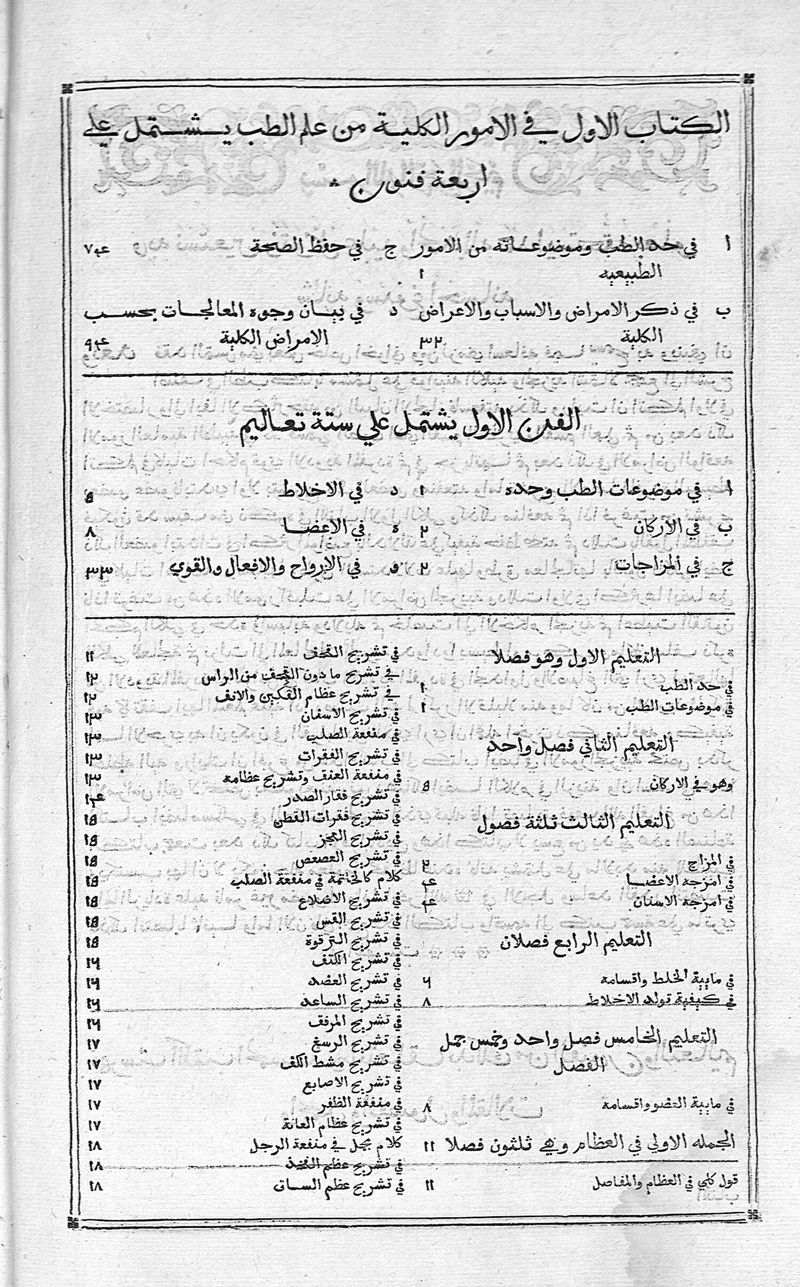 الكتاب الاول في الامور الكلية من علم الطب يشتمل علي
اربعة فنون
ا في حد الطب وموضوعاته من الامور
الطبيعيه ١
ب في ذكر الامراض والاسباب والاعراض
الكلية ٣٢
ج في حفظ الصحة ٧٤
د في بيان وجوه المعالجات بحسب
الامراض الكلية ٩٤
الفن الاول يشتمل علي ستة تعاليم
ا في موضوعات الطب وحده ١
ب في الاركان ٢
ج في المزاجات ٢
د في الاخلاط ٥
ه في الاعضا ٨
و في الارواح والافعال والقوي ٣٣
التعليم الاول وهو فصلا
في حد الطب ١
في موضوعات الطب ١
التعليم الثاني فصل واحد
وهو في الاركان
التعليم الثالث ثلثة فصول
في المزاج ٢
في امزجة الاعضا ٤
في امزجة الاسنان ٤
التعليم الرابع فصلان
في ماييية الخلط واقسامه ٦
في كيفية تولد الاخلاط ٨
التعليم الخامس فصل واحد وخمس جمل
الفصل
في ماييية العضو واقسامه ٨
الجمله الاولي في العظام وهي ثلثون فصلا ١١
قول كلي في العظام والمفاصل ١١
في تشريح القحف ١١
في تشريح ما دون القحف من الراس ١٢
في تشريح عظام الفكين والانف ١٢
في تشريح الاسنان ١٣
في منفعة الصلب ١٣
في تشريح الفقرات ١٣
في منفعة العنق وتشريح عظامه ١٣
في تشريح فقار الصدر ١٤
في تشريح فقرات القطن ١٥
في تشريح العجز ١٥
في تشريح العصعص ١٥
كلام كالخاتمة في منفعة الصلب ١٥
في تشريح الاضلاع ١٥
في تشريح القس ١٥
في تشريح الترقوة ١٥
في تشريح الكتف ١٦
في تشريح العضد ١٦
في تشريح الساعد ١٦
في تشريح المرفق ١٦
في تشريح الرسغ ١٧
في تشريح مشط الكف ١٧
في تشريح الاصابع ١٧
في منفعة الظفر ١٧
في تشريح عظام العانة ١٧
كلام مجمل في منفعة الرجل ١٨
في تشريح عظم الفخذ ١٨
في تشريح عظم الساق ١٨